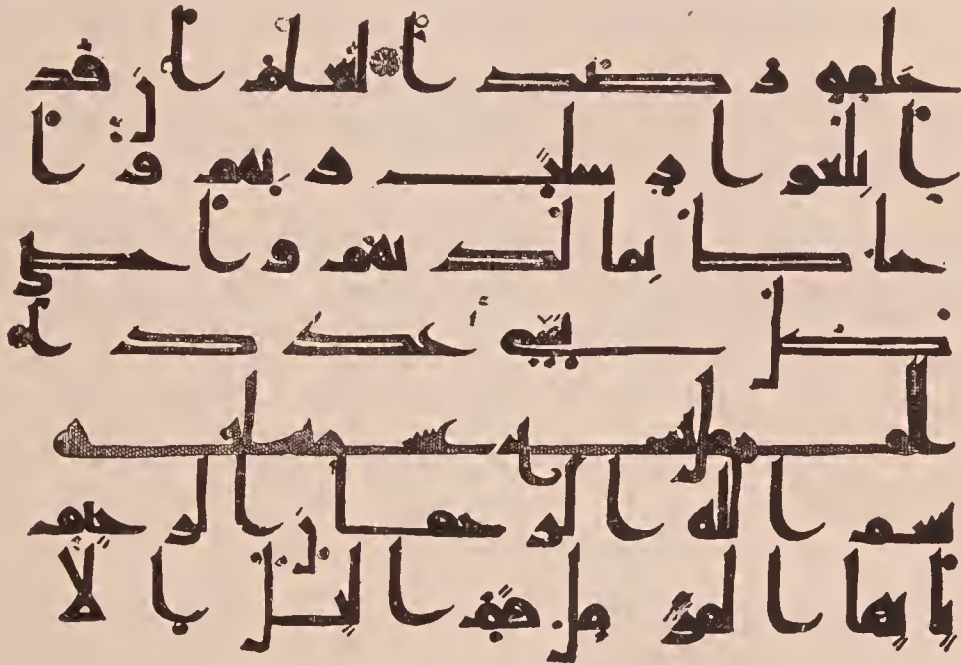 خلفه رصدا ليعلم ان قد
ابلغوا رسلت ربهم وا
حاط بما لديهم واحصى
كل شيء عددا
بسم الله الرحمن الرحيم
يايها المزمل قم اليل الا